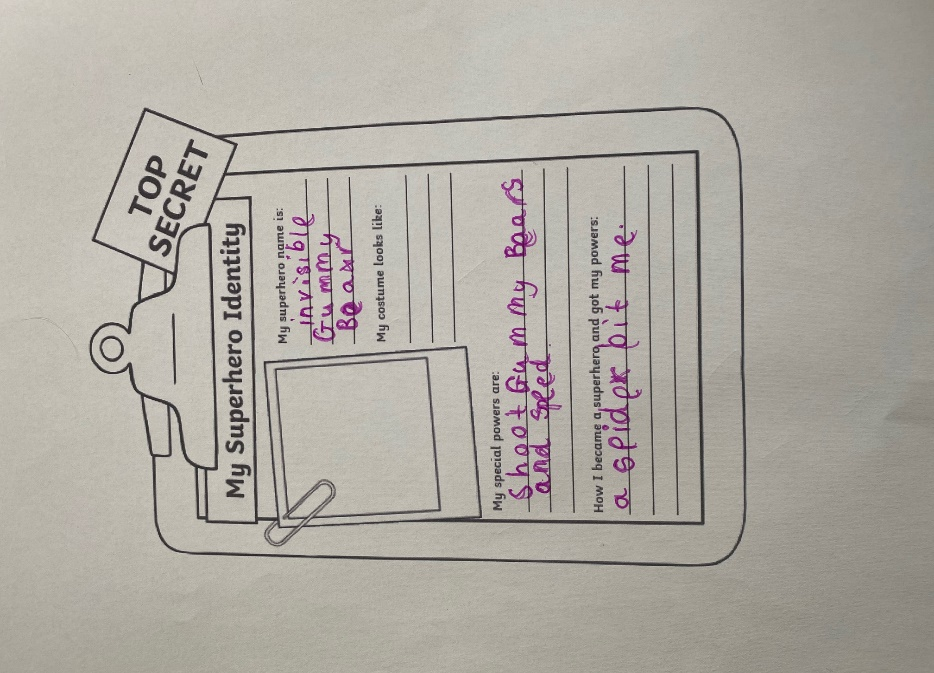 TOP
SECRET
My Superhero Identity
My superhero name is:
invisible
Gummy
Beaar
My costume looks like:
My special powers are:
Shoot Gummy Beaars
and speed.
How I became a superhero and got my powers:
a spider bit me.